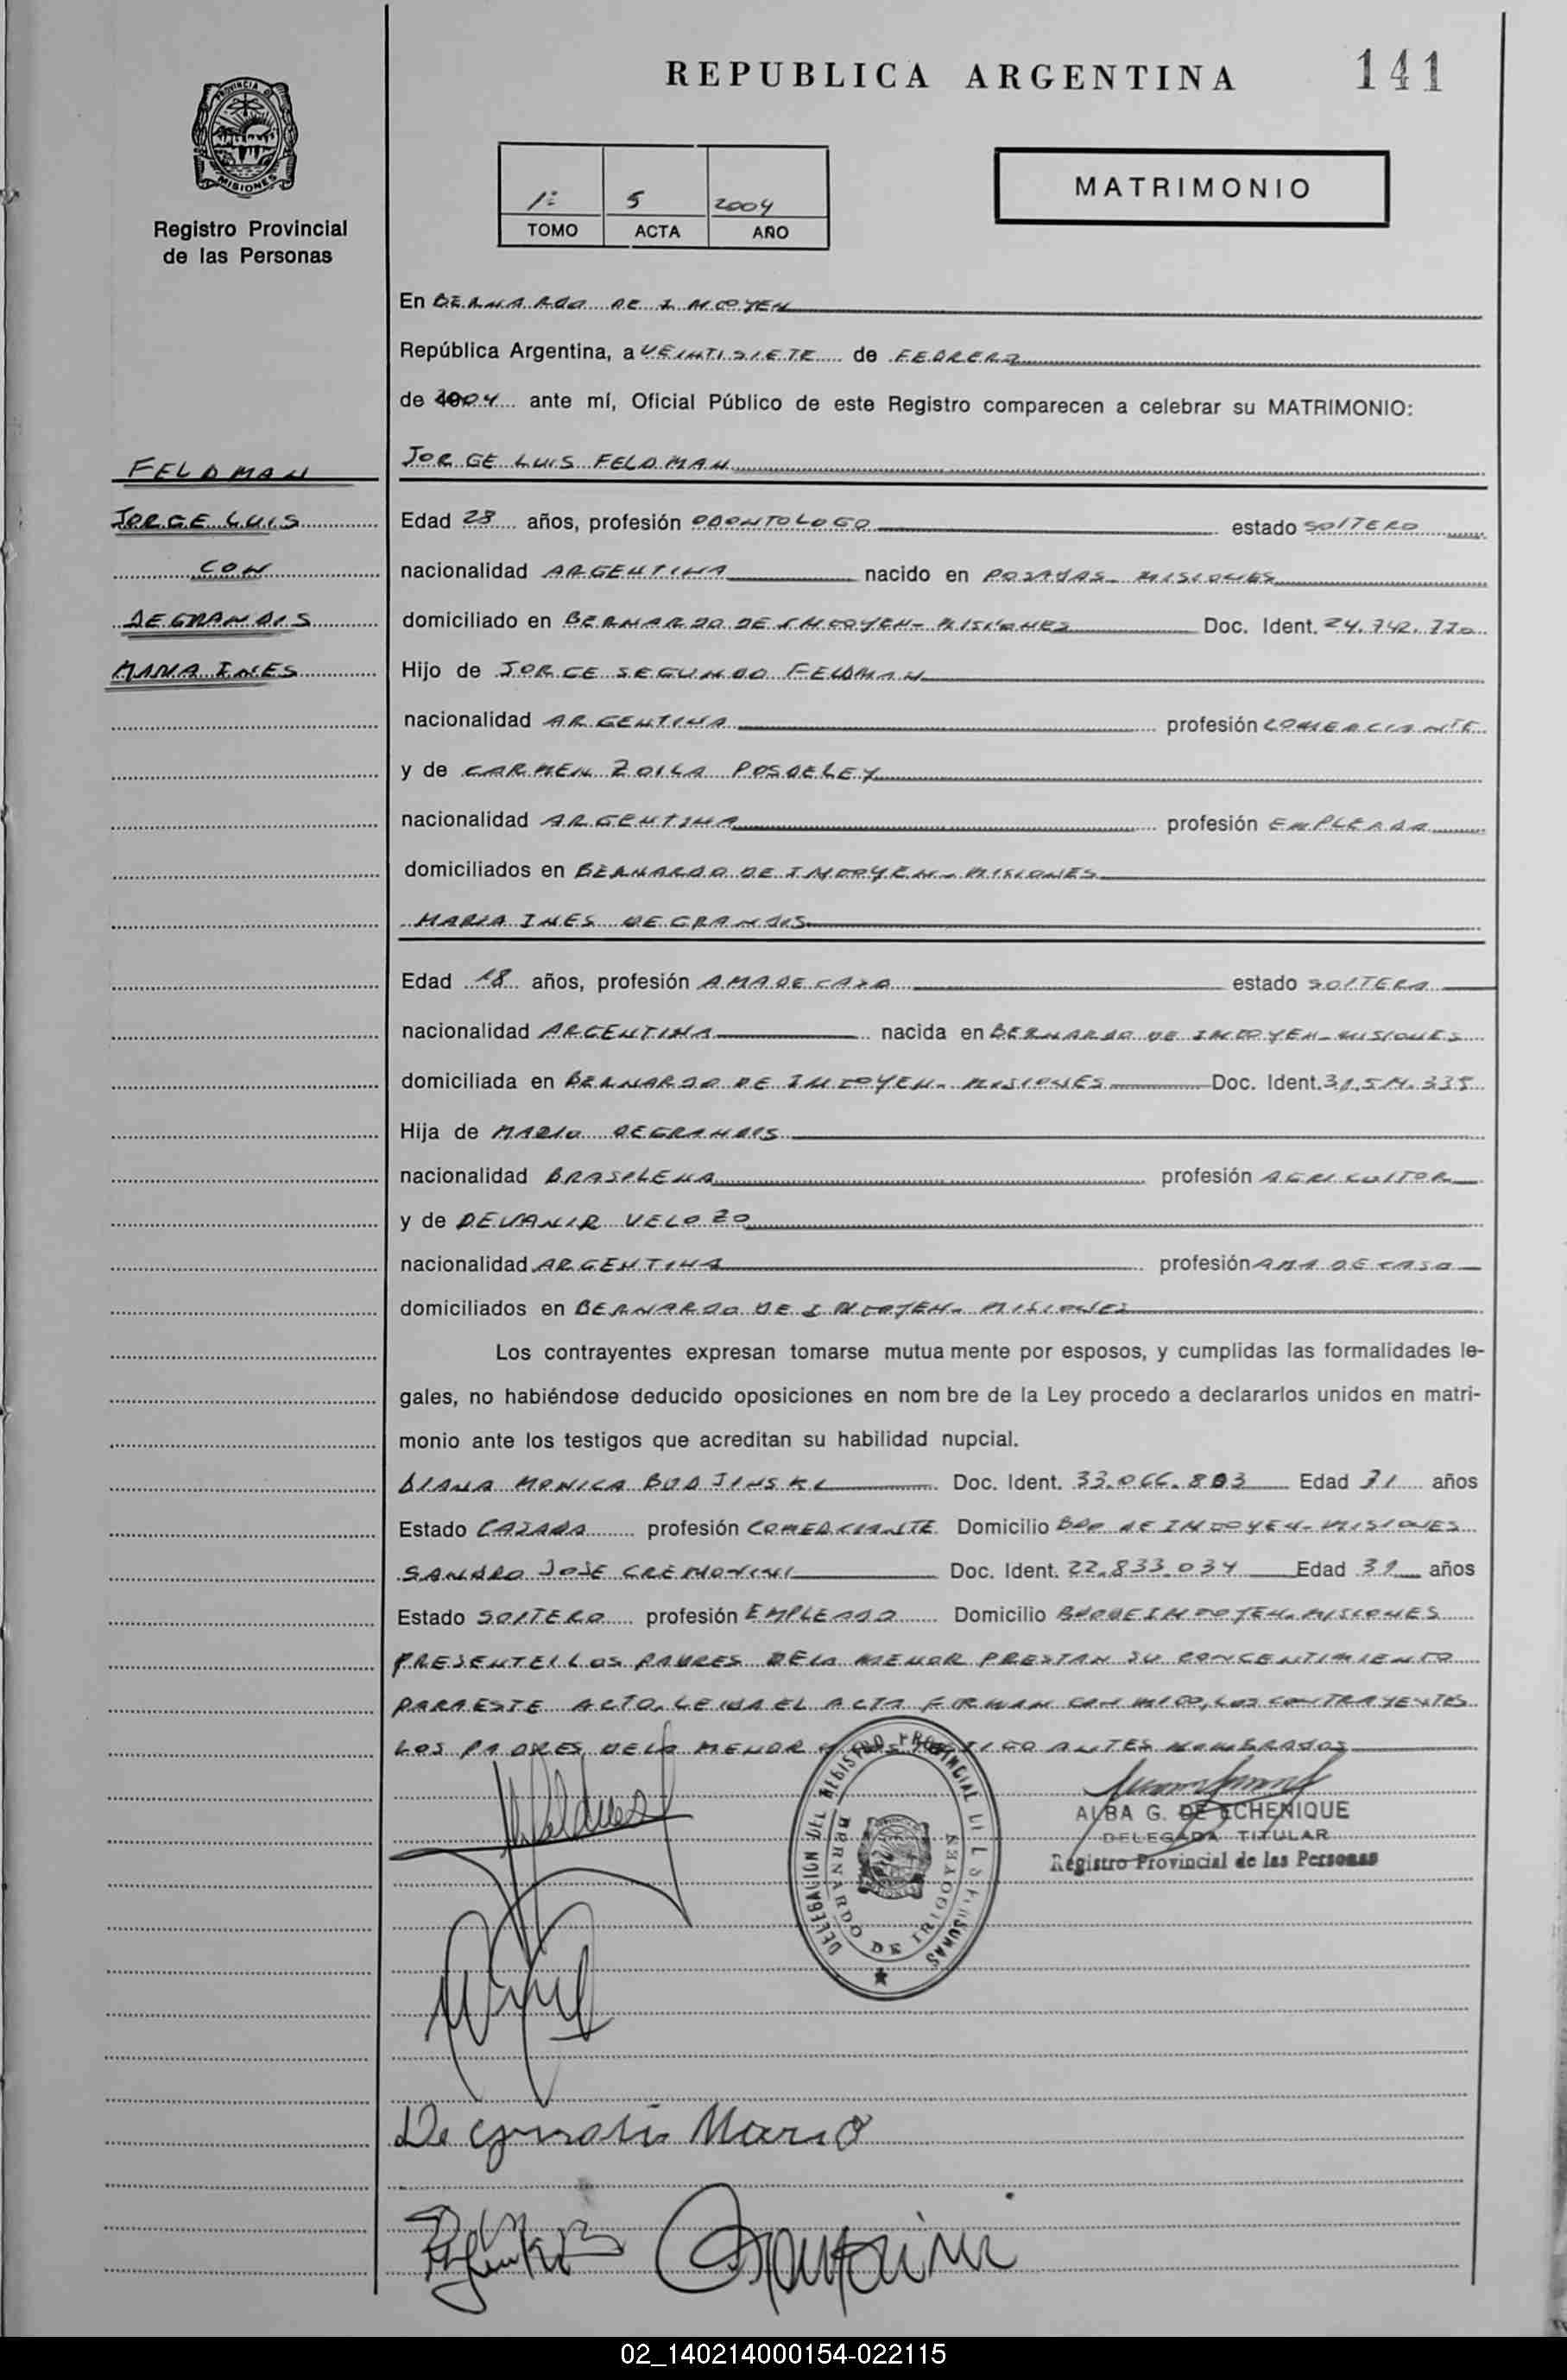 REPUBLICA ARGENTINA
141
PROVINCIA DE
MISIONES
Registro Provincial
de las Personas
1º 5 2004
TOMO ACTA AÑO
MATRIMONIO
En BERNARDO DE IRIGOYEN
República Argentina, a VEINTISIETE de FEBRERO
de 2004 ante mí, Oficial Público de este Registro comparecen a celebrar su MATRIMONIO:
FELDMAN
JORGE LUIS
CON
DEGRANDIS
MARIA INES
JORGE LUIS FELDMAN
Edad 28 años, profesión ODONTOLOGO estado SOLTERO
nacionalidad ARGENTINA nacido en POSADAS- MISIONES
domiciliado en BERNARDO DE IRIGOYEN- MISIONES Doc. Ident. 24.742.770
Hijo de JORGE SEGUNDO FELDMAN
nacionalidad ARGENTINA profesión COMERCIANTE
y de CARMEN ZOILA POSDELEY
nacionalidad ARGENTINA profesión EMPLEADA
domiciliados en BERNARDO DE IRIGOYEN- MISIONES
MARIA INES DEGRANDIS
Edad 18 años, profesión AMA DE CASA estado SOLTERA
nacionalidad ARGENTINA nacida en BERNARDO DE IRIGOYEN-MISIONES
domiciliada en BERNARDO DE IRIGOYEN- MISIONES Doc. Ident.
Hija de MARIO DEGRANDIS
nacionalidad BRASILEÑA profesión AGRICULTOR
y de DEVANIR VELOZO
nacionalidad ARGENTINA profesión AMA DE CASA
domiciliados en BERNARDO DE IRIGOYEN- MISIONES
Los contrayentes expresan tomarse mutua mente por esposos, y cumplidas las formalidades le-
gales, no habiéndose deducido oposiciones en nom bre de la Ley procedo a declararlos unidos en matri-
monio ante los testigos que acreditan su habilidad nupcial.
DIANA MONICA BUDJINSKI Doc. Ident. 33.066.803 Edad 31 años
Estado CASADA profesión COMERCIANTE Domicilio BDO DE IRIGOYEN- MISIONES
SANDRO JOSE CREMONINI Doc. Ident. 22.833.034 Edad 31 años
Estado SOLTERO profesión EMPLEADO Domicilio BDO DE IRIGOYEN- MISIONES
PRESENTE LOS PADRES DE LA MENOR PRESTAN SU CONCENTIMIENTO
PARA ESTE ACTO. LEIDA EL ACTA FIRMAN CONMIGO, LOS CONTRAYENTES
LOS PADRES DE LA MENOR ANTES NOMBRADOS
DELEGACION DEL REGISTRO PROVINCIAL DE LAS PERSONAS
BERNARDO DE IRIGOYEN
ALBA G. DE ECHENIQUE
DELEGADA TITULAR
Registro Provincial de las Personas
De grandis Mario
02_140214000154-022115